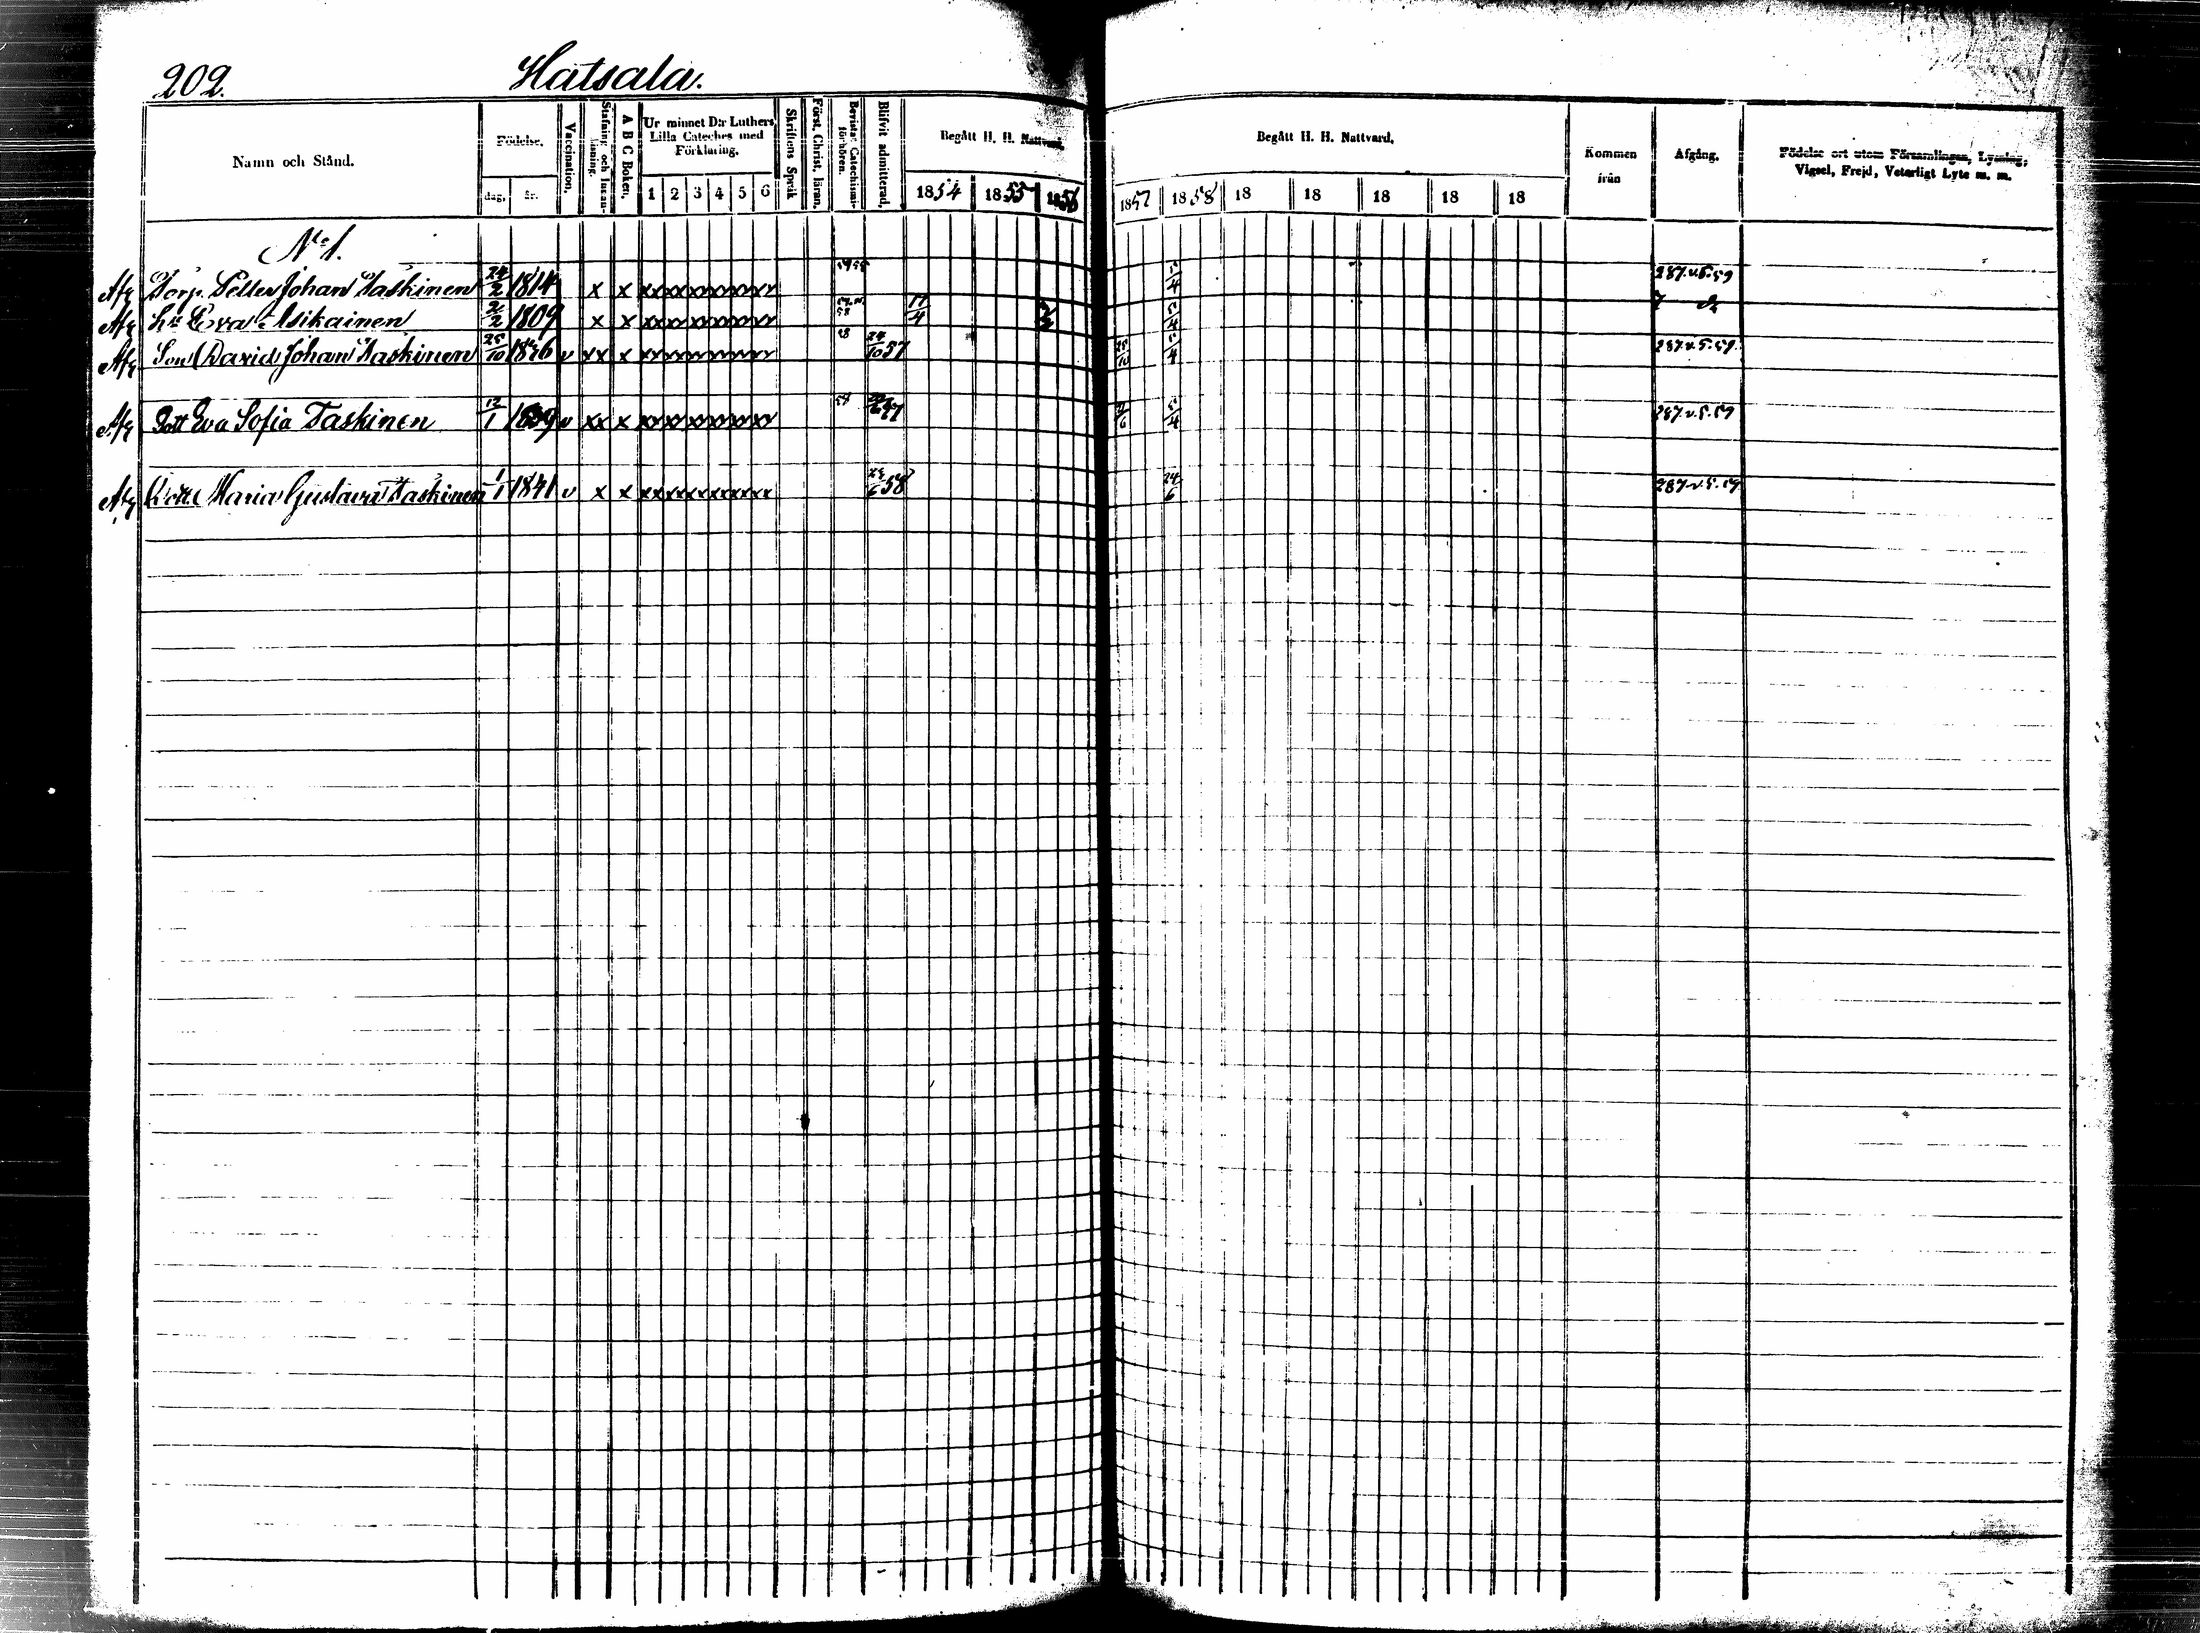 202.
Hatsala.
Namn och Stånd.
Födelse.
dag. år.
Vaccination.
Stafning och Innanläsning.
A B C Boken.
Ur minnet D:r Luthers Lilla Cateches med Förklaring.
1 2 3 4 5 6
Skriftens Språk
Först. Christ. läran.
Bevistat Catechismiförhören.
Blifvit admitterad.
Begått H. H. Nattvard.
1854 1855 1856
Begått H. H. Nattvard.
1857 1858 18 18 18 18 18
Kommen från
Afgång.
Födelse ort utom Församlingen, Lysning, Vigsel, Frejd, Veterligt Lyte m. m.
No 1.
Afg Torp. Petter Johan Taskinen 24/2 1814 x x xx xx xx xx xx xx 5/4 287.v.5.59
Afg H:u Eva Asikainen 2/2 1809 x x xx xx xx xx xx xx 58 17/4 2/2 5/4
Afg Son David Johan Taskinen 25/10 1836 v xx x xx xx xx xx xx xx 58 24/10 57 25/10 5/4 287.v.5.59.
Afg Dott Eva Sofia Taskinen 12/1 1839 v xx x xx xx xx xx xx xx 58 5/4 287.v.5.59
Afg Dott Maria Gustava Taskinen 1/1 1841 v x x xx xx xx xx xx xx 24/6 58 24/6 287.v.5.59